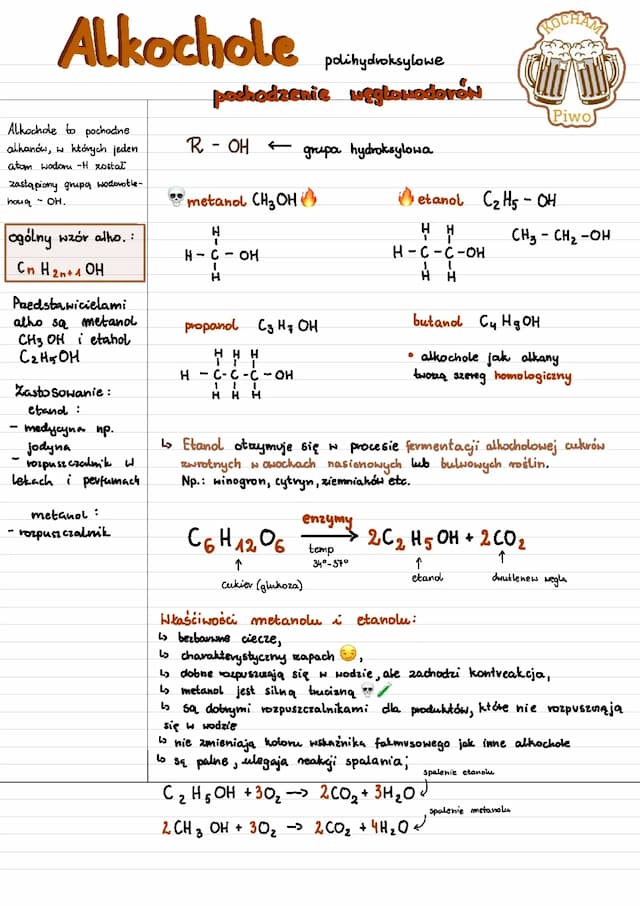 Alkochole
polihydroksylowe
KOCHAM
Piwo
pochodzenie węglowodorów
Alkochole to pochodne
alkanów, w których jeden
atom wodoru -H został
zastąpiony grupą wodorotle-
nową - OH.
ogólny wzór alko. :
CnH2n+1 OH
Przedstawicielami
alko są metanol
CH3OH i etanol
C2H5OH
Zastosowanie :
etanol :
- medycyna np.
jodyna
- rozpuszczalnik w
lekach i perfumach
metanol :
- rozpuszczalnik
R - OH ← grupa hydroksylowa
💀 metanol CH3OH 🔥
H
H - C - OH
H
🔥 etanol C2H5 - OH
H H
H - C - C - OH
H H
CH3 - CH2 - OH
propanol C3H7OH
H H H
H - C - C - C - OH
H H H
butanol C4H9OH
• alkochole jak alkany
tworzą szereg homologiczny
↳ Etanol otrzymuje się w procesie fermentacji alkocholowej cukrów
zwrotnych w owockach nasionowych lub bulwowych roślin.
Np.: winogron, cytryn, ziemniaków etc.
C6H12O6 enzymy → 2C2H5OH + 2CO2
temp
34°-57°
↑ ↑ ↑
cukier (glukoza) etanol dwutlenew węgla
Właściwości metanolu i etanolu:
↳ bezbarwne ciecze,
↳ charakterystyczny zapach 😏,
↳ dobrze rozpuszczają się w wodzie, ale zachodzi kontreakcja,
↳ metanol jest silną trucizną 💀🧪
↳ są dobrymi rozpuszczalnikami dla produktów, które nie rozpuszczają
się w wodzie
↳ nie zmieniają koloru wskaźnika lakmusowego jak inne alkochole
↳ są palne, ulegają reakcji spalania;
spalenie etanolu
C2H5OH + 3O2 → 2CO2 + 3H2O
spalenie metanolu
2CH3OH + 3O2 → 2CO2 + 4H2O